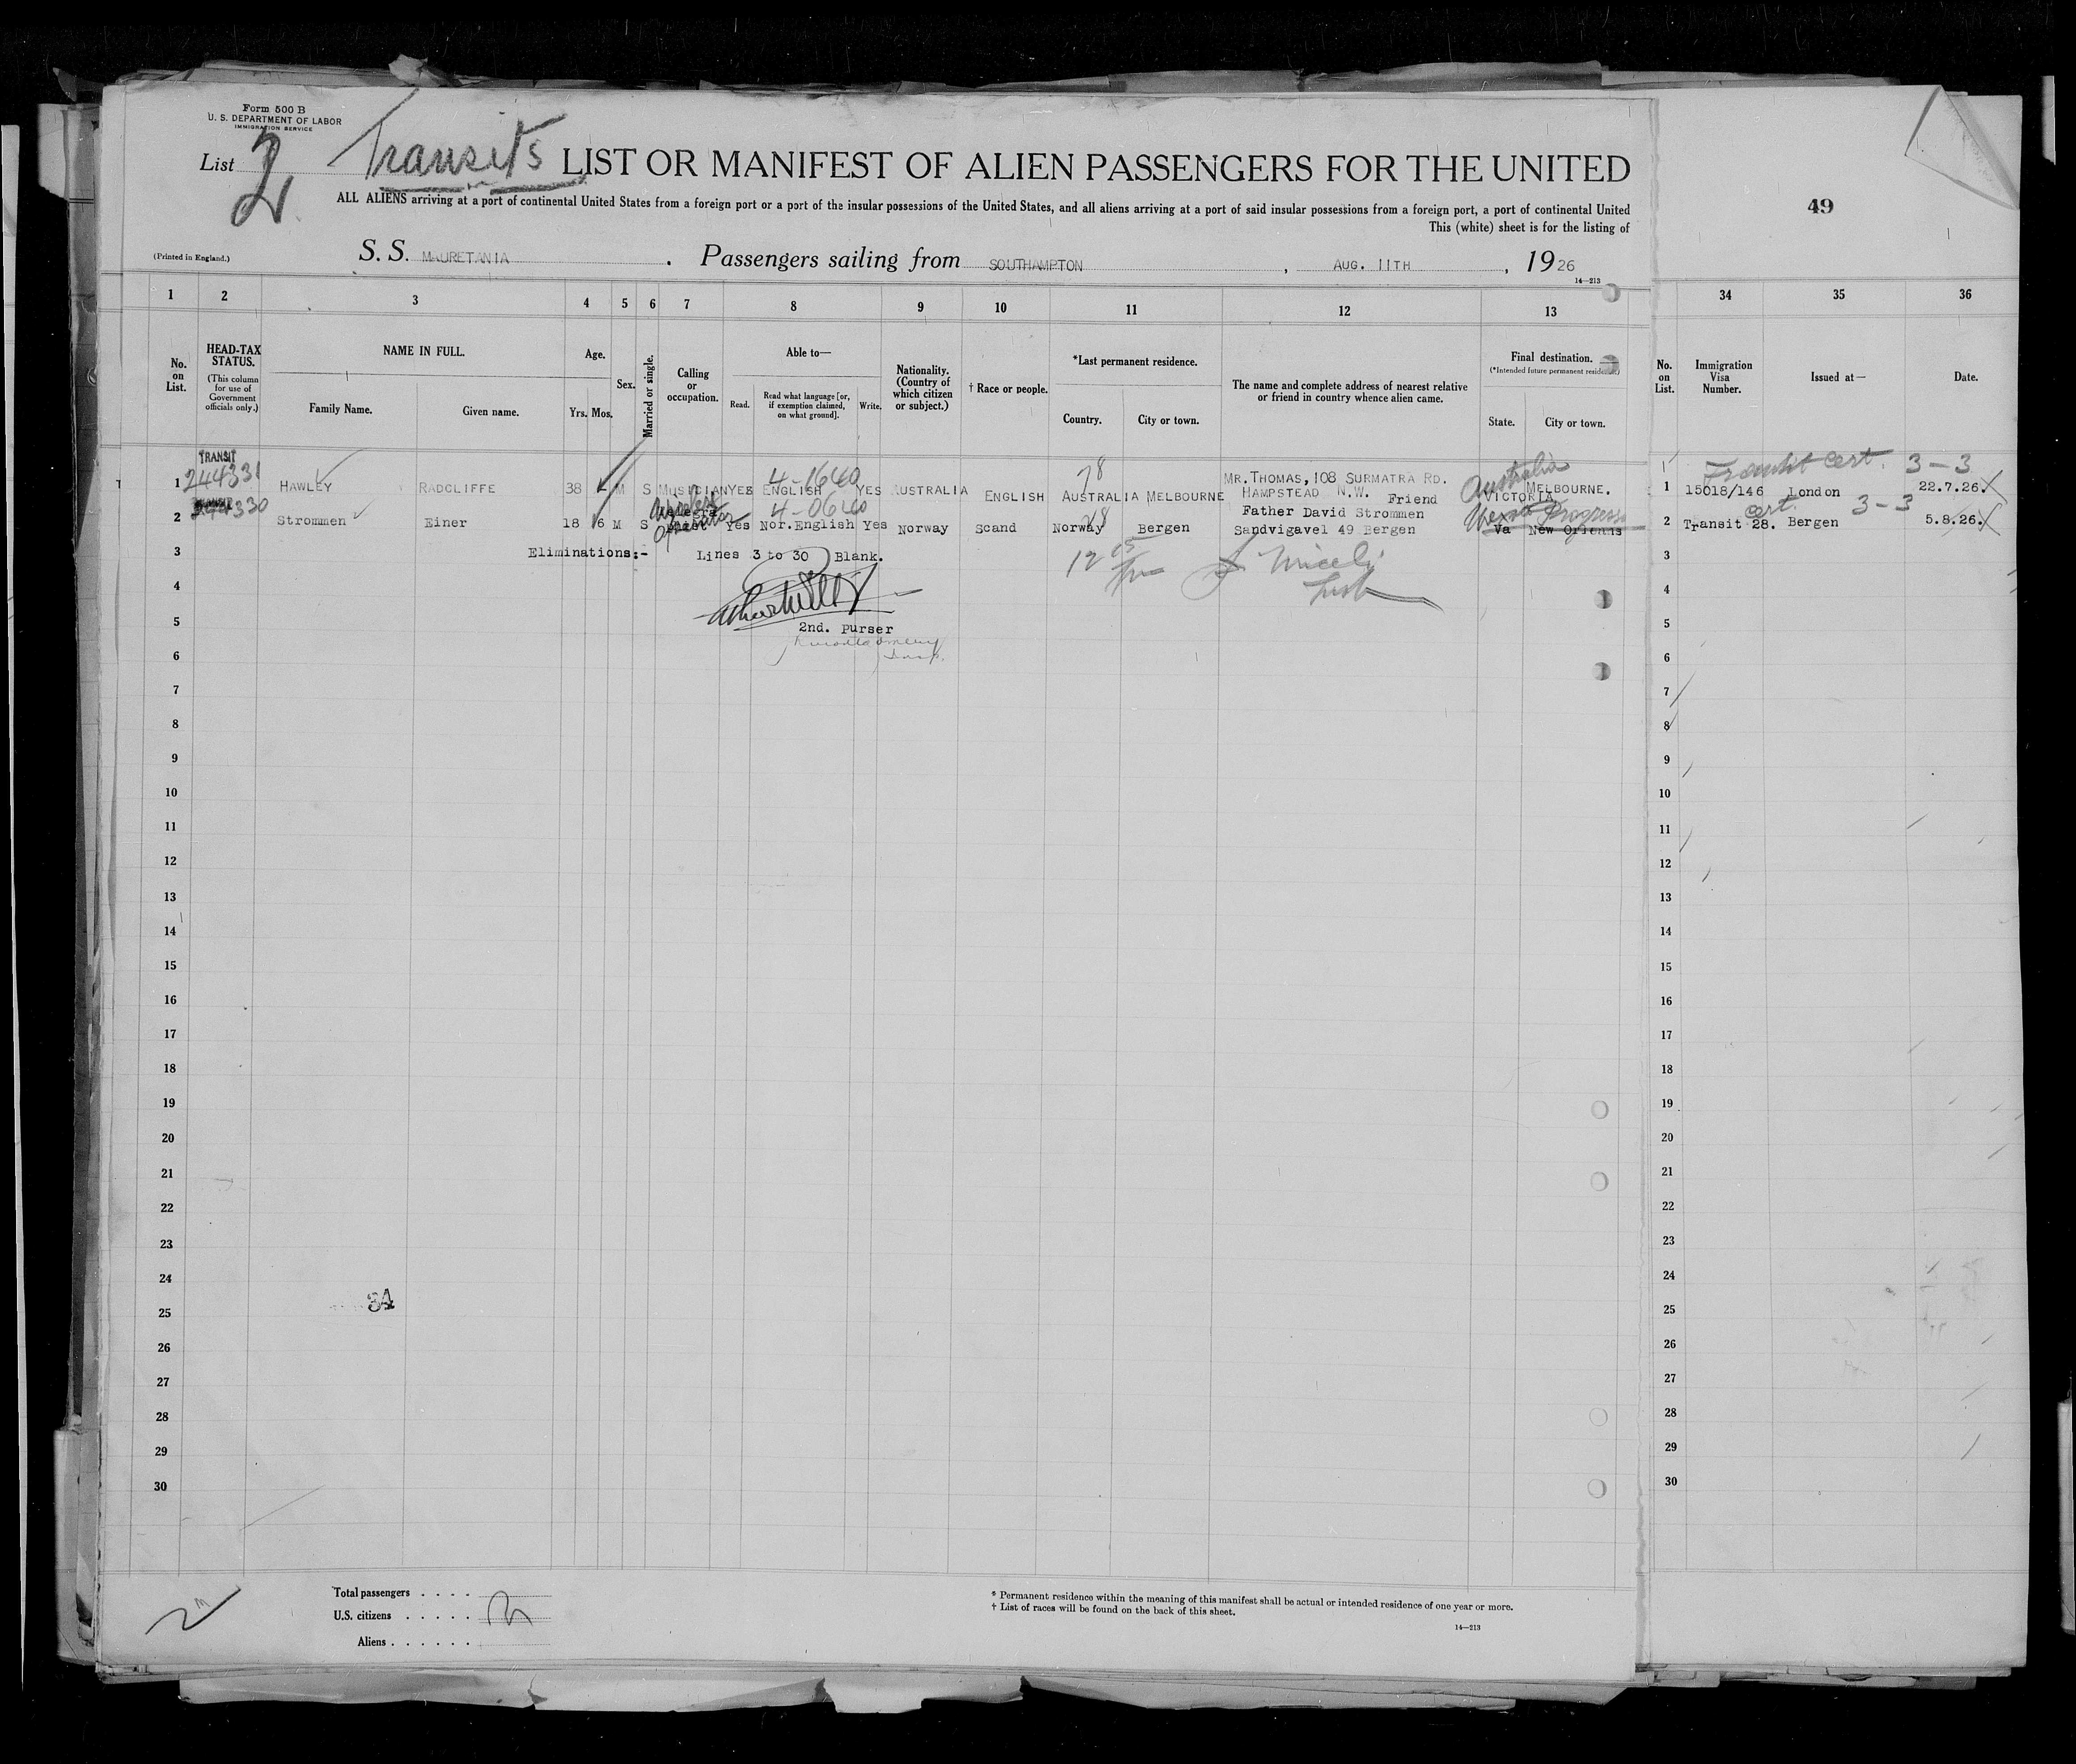 Form 500 B
U. S. DEPARTMENT OF LABOR
IMMIGRATION SERVICE
List 2 Transits LIST OR MANIFEST OF ALIEN PASSENGERS FOR THE UNITED
ALL ALIENS arriving at a port of continental United States from a foreign port or a port of the insular possessions of the United States, and all aliens arriving at a port of said insular possessions from a foreign port, a port of continental United
This (white) sheet is for the listing of
49
(Printed in England.) S. S. MAURETANIA . Passengers sailing from SOUTHAMPTON , AUG. 11TH , 1926
14—213
1 2 3 4 5 6 7 8 9 10 11 12 13 34 35 36
No. on List.
HEAD-TAX STATUS.
(This column for use of Government officials only.)
NAME IN FULL.
Family Name. Given name.
Age.
Yrs. Mos.
Sex.
Married or single.
Calling or occupation.
Able to—
Read. Read what language [or, if exemption claimed, on what ground]. Write.
Nationality. (Country of which citizen or subject.)
† Race or people.
*Last permanent residence.
Country. City or town.
The name and complete address of nearest relative or friend in country whence alien came.
Final destination.
(*Intended future permanent residence.)
State. City or town.
No. on List.
Immigration Visa Number.
Issued at—
Date.
TRANSIT
244331 4-1640 78 Australia Transit cert. 3-3
1 HAWLEY RADCLIFFE 38 M S MUSICIAN YES ENGLISH YES AUSTRALIA ENGLISH AUSTRALIA MELBOURNE MR. THOMAS, 108 SURMATRA RD. HAMPSTEAD N.W. Friend VICTORIA MELBOURNE. 1 15018/146 London 22.7.26.
244330 4-0640 cert. 3-3
2 Strommen Einer 18 6 M S operator Yes Nor. English Yes Norway Scand Norway Bergen Father David Strommen Sandvigavel 49 Bergen Progreso Va New Orleans 2 Transit 28. Bergen 5.8.26.
3 Eliminations:- Lines 3 to 30 Blank. 3
4 4
5 2nd. Purser 5
6 6
7 7
8 8
9 9
10 10
11 11
12 12
13 13
14 14
15 15
16 16
17 17
18 18
19 19
20 20
21 21
22 22
23 23
24 24
34
25 25
26 26
27 27
28 28
29 29
30 30
Total passengers . . . .
U.S. citizens . . . . . .
Aliens . . . . . .
* Permanent residence within the meaning of this manifest shall be actual or intended residence of one year or more.
† List of races will be found on the back of this sheet.
14—213